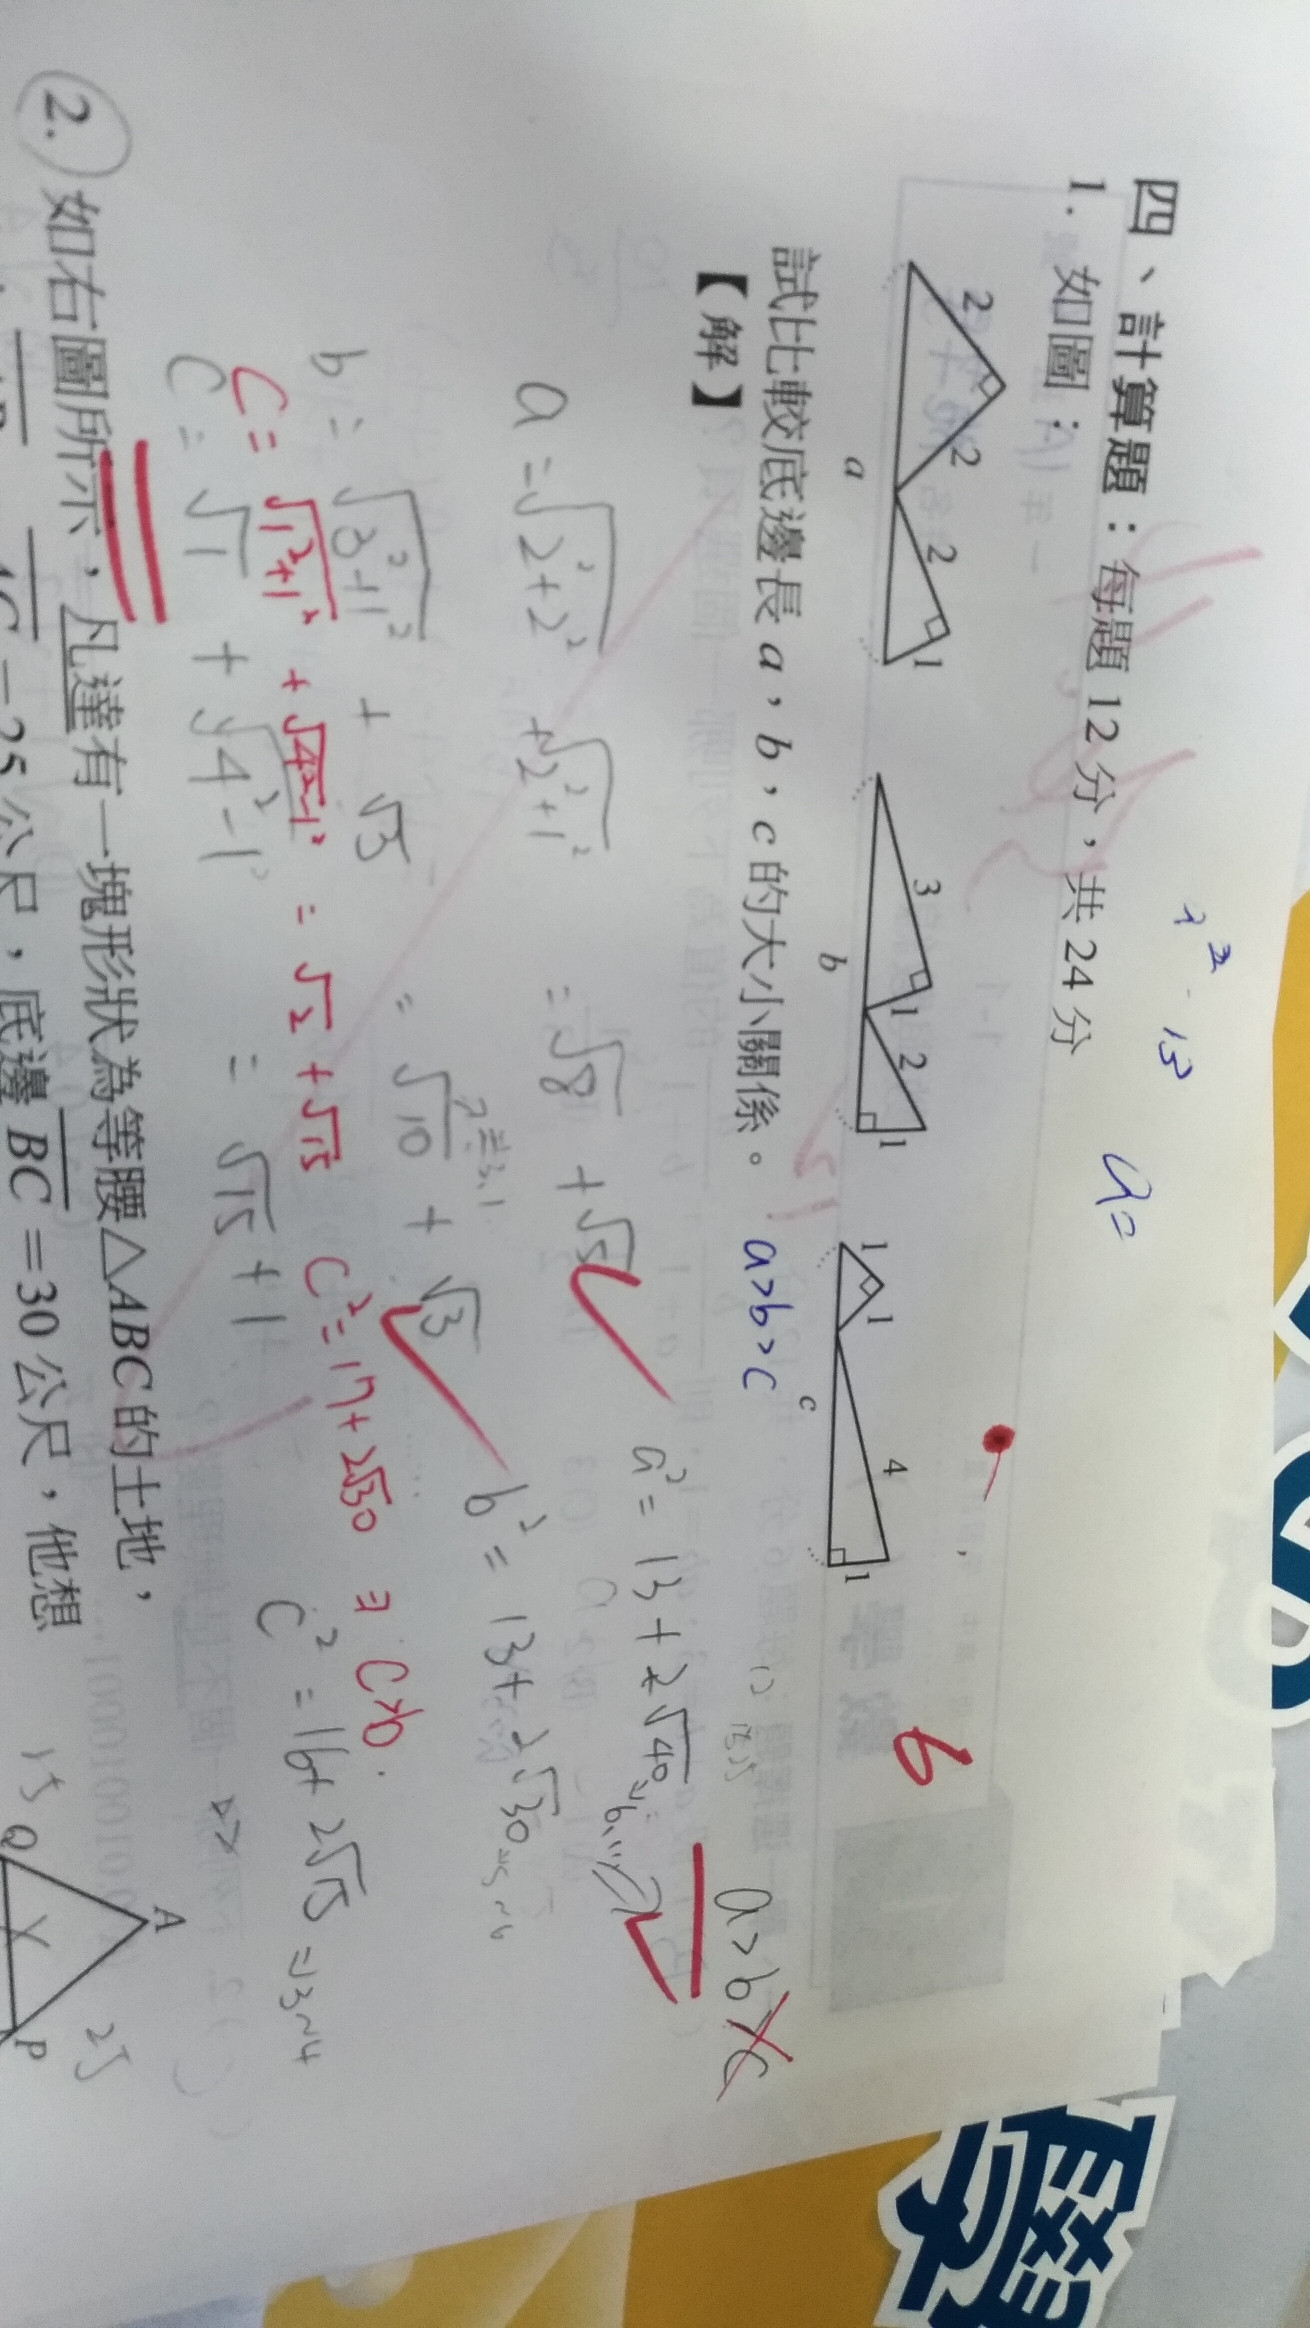 四、計算題：每題 12 分，共 24 分
1. 如圖：
2 2 2 1
a
3 1 2 1
b
1 1 4 1
c
6
試比較底邊長 a，b，c 的大小關係。 a>b>c
【解】
a>b>c
a = √2²+2² + √2²+1² = √8 + √5
a² = 13 + 2√40
b = √3²+1² + √3 = √10 + √3
b² = 13 + 2√30
C = √1²+1² + √4²-1² = √2 + √15 C² = 17 + 2√30 ∃ C>b.
C = √1 + √4²-1² = √15 + 1
C² = 16 + 2√15 = 3~4
2. 如右圖所示，凡達有一塊形狀為等腰△ABC的土地，
AC = 25 公尺，底邊 BC = 30 公尺，他想
A
Q
P
a=
學